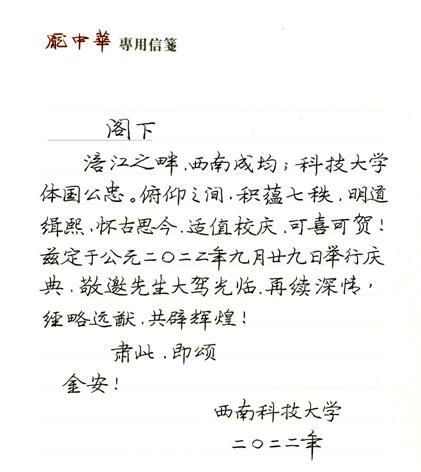 龐中華 專用信箋
阁下
涪江之畔，西南成均；科技大学
体国公忠。俯仰之间，积蕴七秩，明道
缉熙，怀古思今，适值校庆，可喜可贺！
兹定于公元二〇二二年九月廿九日举行庆
典，敬邀先生大驾光临，再续深情，
经略远猷，共辟辉煌！
肃此，即颂
金安！
西南科技大学
二〇二二年